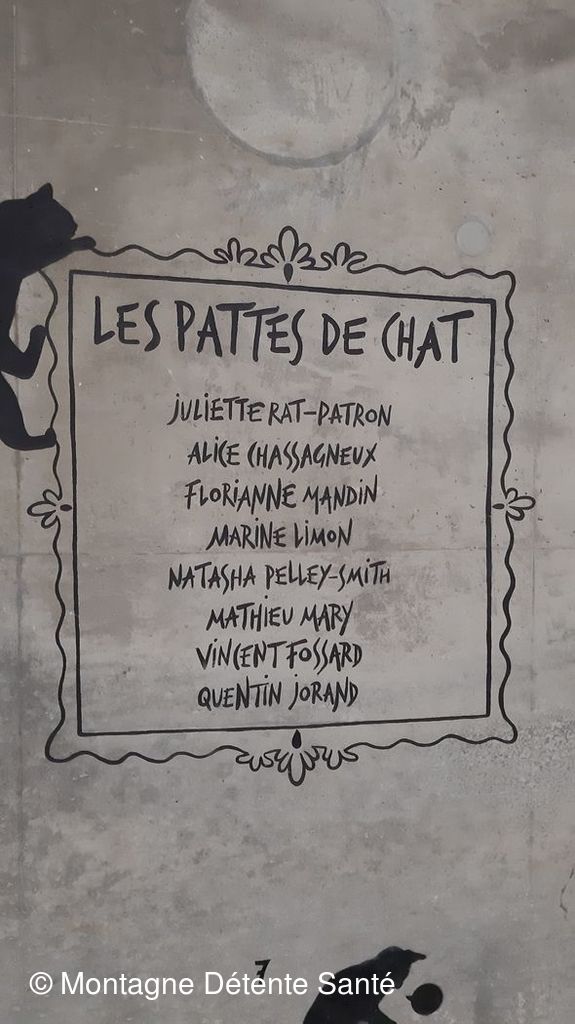 LES PATTES DE CHAT
JULIETTE RAT-PATRON
ALICE CHASSAGNEUX
FLORIANNE MANDIN
MARINE LIMON
NATASHA PELLEY-SMITH
MATHIEU MARY
VINCENT FOSSARD
QUENTIN JORAND
7
© Montagne Détente Santé